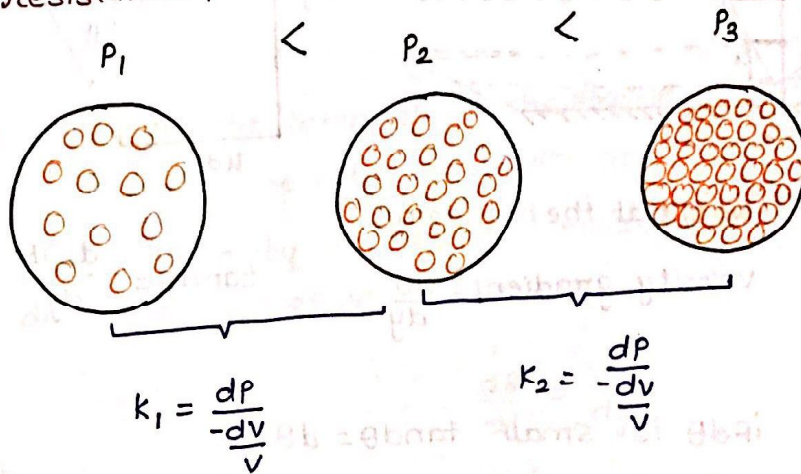 P₁ < P₂ < P₃
K₁ = dP / (-dv/v)
K₂ = dP / (-dv/v)